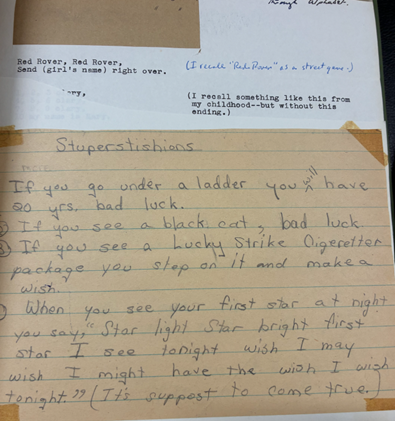 through alphabet.
Red Rover, Red Rover,
Send (girl's name) right over.
(I recall "Red Rover" as a street game.)
(I recall something like this from
my childhood--but without this
ending.)
Stuperstishions
If you go under a ladder you will have
20 yrs. bad luck.
If you see a black cat, bad luck
If you see a Lucky Strike Cigeretter
package you step on it and make a
wish.
When you see your first star at night
you say, "Star light Star bright first
star I see tonight wish I may
wish I might have the wish I wish
tonight." (It's suppost to come true.)